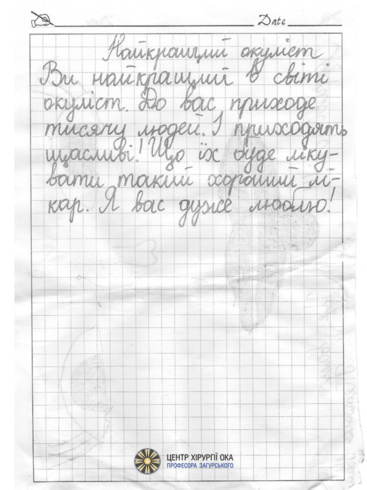 Date
Найкращий окуліст
Ви найкращий в світі
окуліст. До вас приходе
тисячу людей. І приходять
щасливі! Що їх буде ліку-
вати такий хороший лі-
кар. Я вас дуже люблю!
ЦЕНТР ХІРУРГІЇ ОКА
ПРОФЕСОРА ЗАГУРСЬКОГО